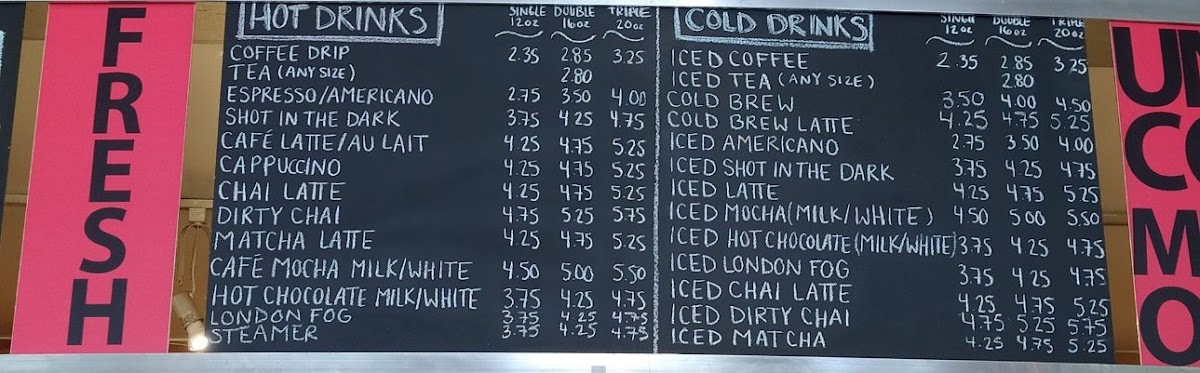 FRESH
HOT DRINKS SINGLE 12oz DOUBLE 16oz TRIPLE 20oz
COFFEE DRIP 2.35 2.85 3.25
TEA (ANY SIZE) 2.80
ESPRESSO/AMERICANO 2.75 3.50 4.00
SHOT IN THE DARK 3.75 4.25 4.75
CAFÉ LATTE/AU LAIT 4.25 4.75 5.25
CAPPUCCINO 4.25 4.75 5.25
CHAI LATTE 4.25 4.75 5.25
DIRTY CHAI 4.75 5.25 5.75
MATCHA LATTE 4.25 4.75 5.25
CAFÉ MOCHA MILK/WHITE 4.50 5.00 5.50
HOT CHOCOLATE MILK/WHITE 3.75 4.25 4.75
LONDON FOG 3.75 4.25 4.75
STEAMER 3.75 4.25 4.75
COLD DRINKS SINGLE 12oz DOUBLE 16oz TRIPLE 20oz
ICED COFFEE 2.35 2.85 3.25
ICED TEA (ANY SIZE) 2.80
COLD BREW 3.50 4.00 4.50
COLD BREW LATTE 4.25 4.75 5.25
ICED AMERICANO 2.75 3.50 4.00
ICED SHOT IN THE DARK 3.75 4.25 4.75
ICED LATTE 4.25 4.75 5.25
ICED MOCHA (MILK/WHITE) 4.50 5.00 5.50
ICED HOT CHOCOLATE (MILK/WHITE) 3.75 4.25 4.75
ICED LONDON FOG 3.75 4.25 4.75
ICED CHAI LATTE 4.25 4.75 5.25
ICED DIRTY CHAI 4.75 5.25 5.75
ICED MATCHA 4.25 4.75 5.25